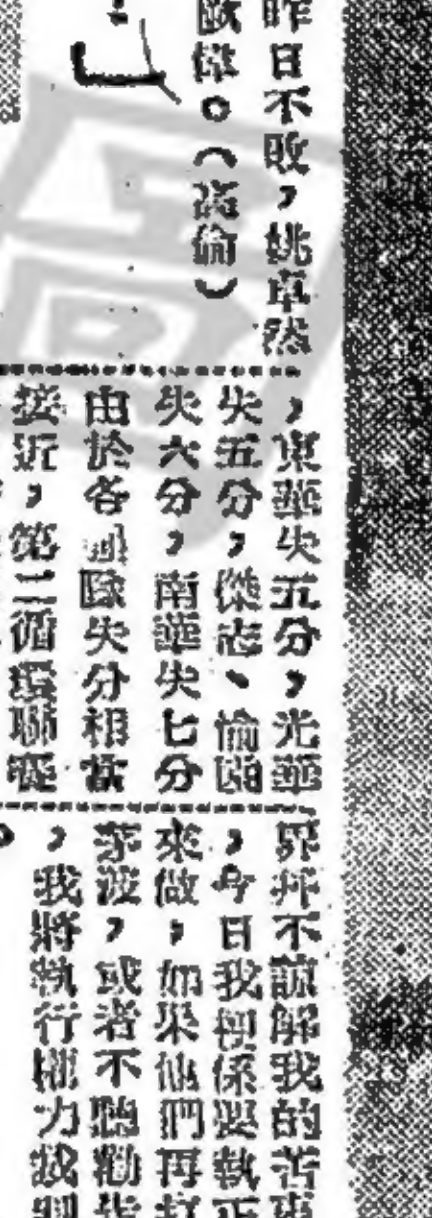 昨日不敗，姚卓然
歐偉。（高偷）
，東華失五分，光華
失五分，傑志、愉園
失六分，南華失七分
由於各球隊失分相當
接近，第二循環聯賽
界并不諒解我的苦衷
，今日我便係要執正
來做，如果他們再打
茅波，或者不聽勸告
，我將執行權力裁判